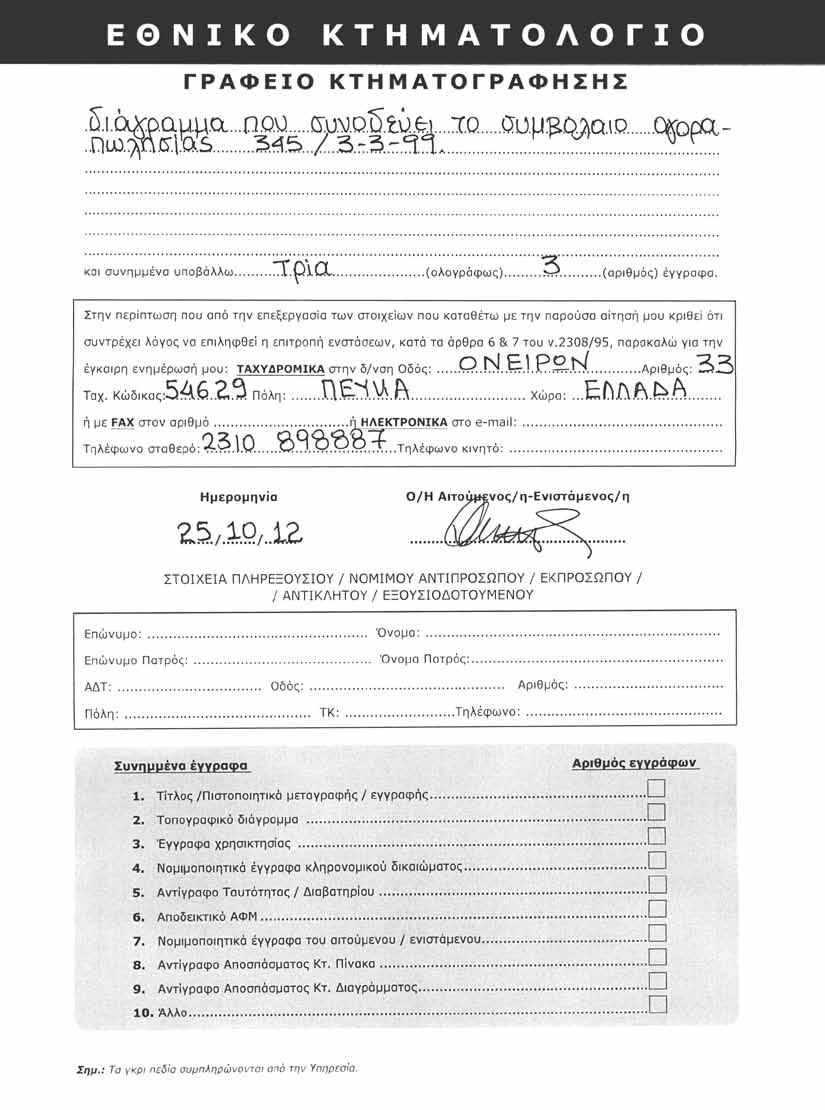 ΕΘΝΙΚΟ ΚΤΗΜΑΤΟΛΟΓΙΟ
ΓΡΑΦΕΙΟ ΚΤΗΜΑΤΟΓΡΑΦΗΣΗΣ
διάγραμμα που συνοδεύει το συμβολαιο αγορα-
πωλησίας 345 / 3-3-99.
και συνημμένα υποβάλλω..........Τρία......................(ολογράφως).........3..........(αριθμός) έγγραφα.
Στην περίπτωση που από την επεξεργασία των στοιχείων που καταθέτω με την παρούσα αίτησή μου κριθεί ότι
συντρέχει λόγος να επιληφθεί η επιτροπή ενστάσεων, κατά τα άρθρα 6 & 7 του ν.2308/95, παρακαλώ για την
έγκαιρη ενημέρωσή μου: ΤΑΧΥΔΡΟΜΙΚΑ στην δ/νση Οδός: .....ΟΝΕΙΡΩΝ............Αριθμός: 33
Ταχ. Κώδικας: 54629 Πόλη: .......ΠΕΥΚΑ.......................... Χώρα: ...ΕΛΛΑΔΑ........
ή με FAX στον αριθμό ..................................ή ΗΛΕΚΤΡΟΝΙΚΑ στο e-mail: ..................................................
Τηλέφωνο σταθερό: 2310 898887 ..Τηλέφωνο κινητό: .......................................................
Ημερομηνία Ο/Η Αιτούμενος/η-Ενιστάμενος/η
25/10/12
ΣΤΟΙΧΕΙΑ ΠΛΗΡΕΞΟΥΣΙΟΥ / ΝΟΜΙΜΟΥ ΑΝΤΙΠΡΟΣΩΠΟΥ / ΕΚΠΡΟΣΩΠΟΥ /
/ ΑΝΤΙΚΛΗΤΟΥ / ΕΞΟΥΣΙΟΔΟΤΟΥΜΕΝΟΥ
Επώνυμο: ....................................................... Όνομα: .........................................................................
Επώνυμο Πατρός: ............................................ Όνομα Πατρός:..............................................................
ΑΔΤ: .................................... Οδός: ................................................. Αριθμός: .....................................
Πόλη: .............................................. ΤΚ: ...........................Τηλέφωνο: .................................................
Συνημμένα έγγραφα Αριθμός εγγράφων
1. Τίτλος /Πιστοποιητικά μεταγραφής / εγγραφής......................................................
2. Τοπογραφικό διάγραμμα .....................................................................................
3. Έγγραφα χρησικτησίας .......................................................................................
4. Νομιμοποιητικά έγγραφα κληρονομικού δικαιώματος..............................................
5. Αντίγραφο Ταυτότητας / Διαβατηρίου ...................................................................
6. Αποδεικτικό ΑΦΜ................................................................................................
7. Νομιμοποιητικά έγγραφα του αιτούμενου / ενιστάμενου.........................................
8. Αντίγραφο Αποσπάσματος Κτ. Πίνακα ..................................................................
9. Αντίγραφο Αποσπάσματος Κτ. Διαγράμματος.........................................................
10. Άλλο..................................................................................................................
Σημ.: Τα γκρι πεδία συμπληρώνονται από την Υπηρεσία.